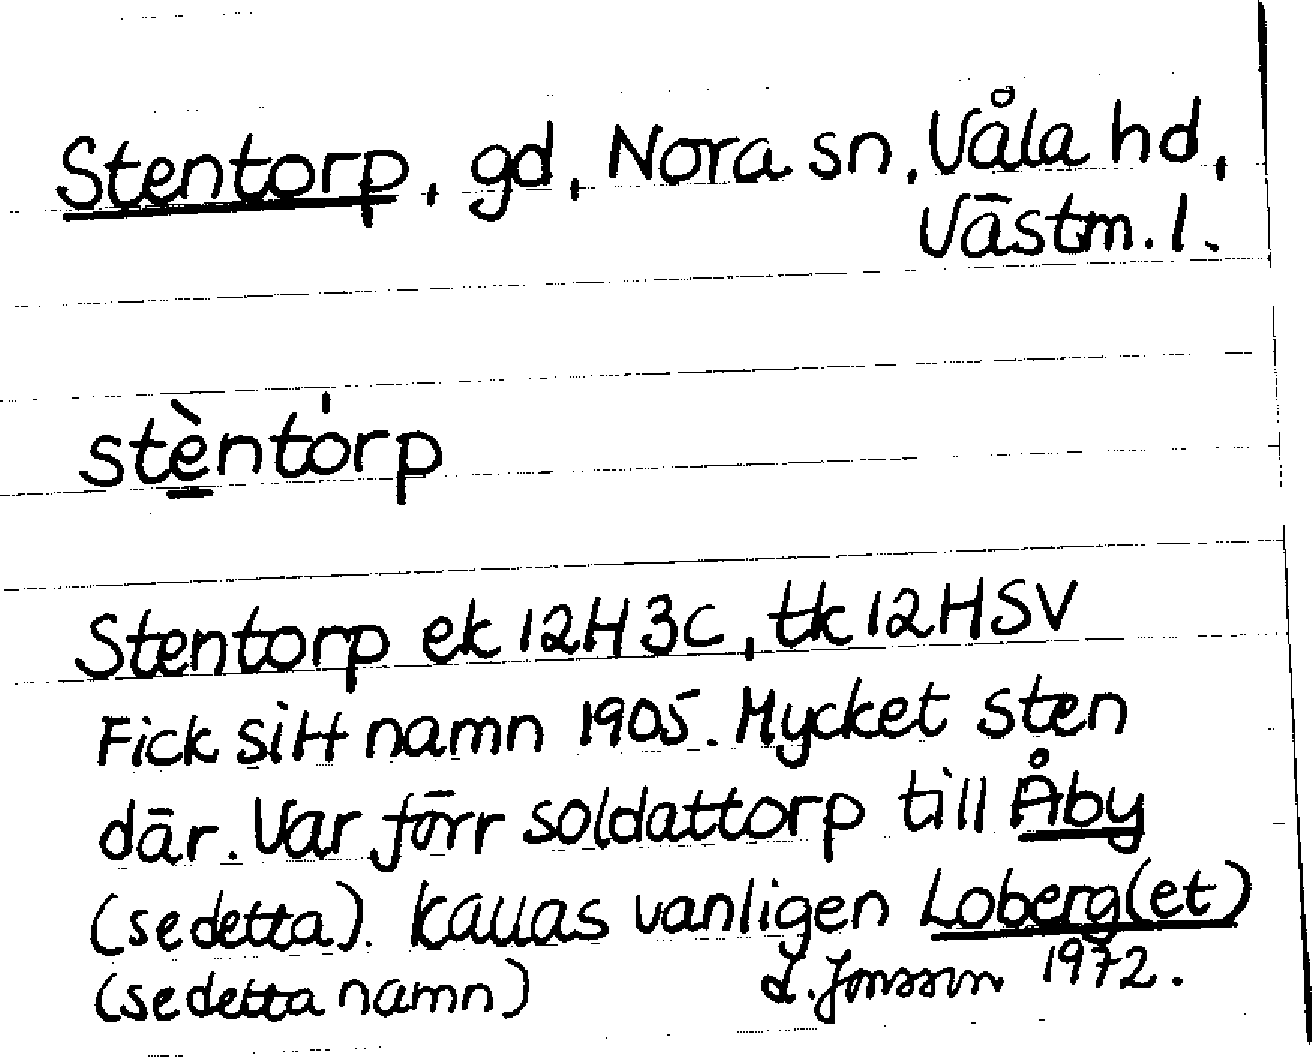 Stentorp, gd, Nora sn, Våla hd,
Västm. l.
stèntórp
Stentorp ek 12H3c, tk 12HSV
Fick sitt namn 1905. Mycket sten
där. Var förr soldattorp till Åby
(se detta). Kallas vanligen Loberg(et)
(se detta namn) L. Jonsson 1972.